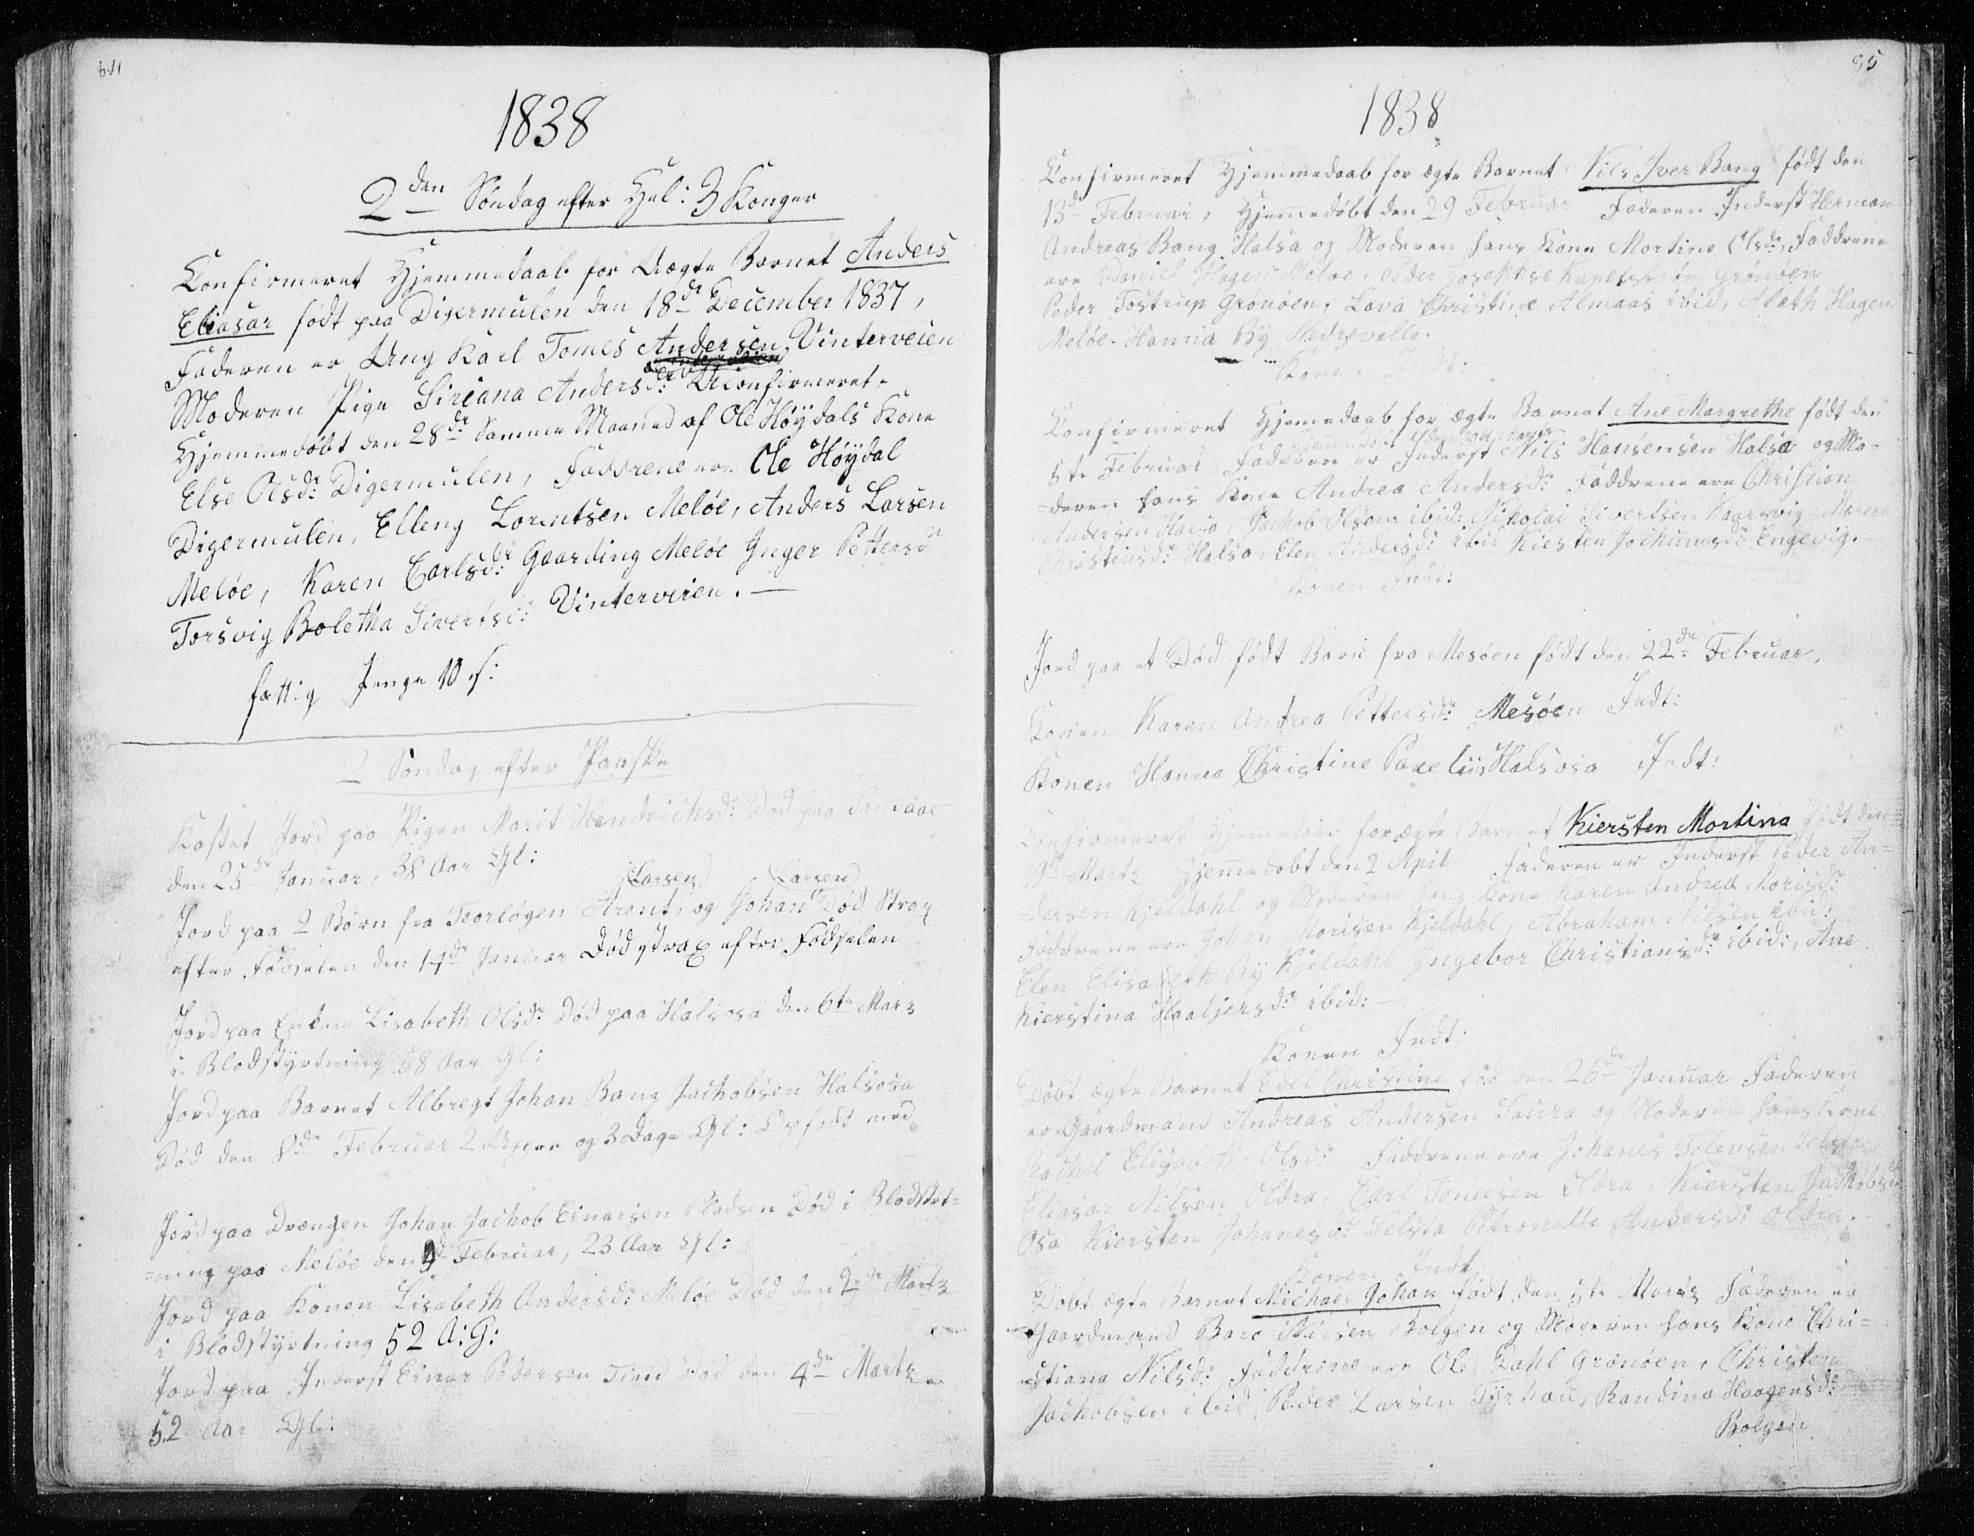 1838
2den Söndag efter Hel: 3 Konger
Confirmeret Hjemmedaab for Uægte Barnet Anders
Eliasar født paa Digermulen den 18de December 1837,
Faderen er Ung Karl Tomes Andersen Vinterveien
Moderen Pige Siriana Andersd: Uconfirmeret.
Hjemmedøbt den 28de Samme Maaned af Ole Høydals Kone
Else Olsdr: Digermulen, Faddrene ere Ole Høydal
Digermulen, Elleng Lorentsen Meløe, Anders Larsen
Meløe, Karen Carlsdr: Gaarding Meløe Inger Pettersdr
Torsvig Boletha Sivertsd: Vinterveien. —
fattig Penge 10 s:
2 Søndag efter Paaske
Kastet Jord paa Pigen Marit Hendrichsd: Død paa
den 25de Januar, 38 Aar Gl:
(Larsen) (Larsen)
Jord paa 2 Børn fra Teorløgen Arent, og Johan Død Strax
efter Fødselen den 14de Januar Død strax efter Fødselen
Jord paa Enken Lisabeth Olsdr: Død paa Halsosa den 6te Marz
i Blodstyrtning 58 Aar Gl:
Jord paa Barnet Albregt Johan Bang Jachobsen Halsosa
Død den 8de Februar 2 Uger og 3 Dage Gl: Opfødt med
Jord paa Drængen Johan Jachob Einarsen Pladsen Død i Blodstørt=
=ning paa Meløe den 9de Februar, 23 Aar Gl:
Jord paa Konen Lisabeth Andersd: Meløe Død den 2de Martz
i Blodstyrtning 52 A: G:
Jord paa Inderst Einar Pedersen Tind Død den 4de Martz
52 Aar Gl:
85
1838
Confirmeret Hjemmedaab for ægte Barnet Nils Iver Bang født den
13de Februar, Hjemedøbt den 29 Februar Faderen Inderst Herman
Andreas Bang Halsa og Moderen hans Kone Martine Olsdr: Faddrene
ere Daniel Hagen Meløe Peder Grønøen
Peder Tostrup Grønøen, Lava Christine Almaas ibid, Aleth Hagen
Meløe. Hanna By Nedrevalle.
Konen Indt:
Confirmeret Hjemedaab for ægte Barnet Ane Margrethe født den
5te Februar Faderen er Inderst Nils Hansensen Halsa og Mo-
=deren hans Kone Andrea Andersdr: Faddrene ere Christian
Andersen Halsa, Jachob Olsen ibid: Nikolai Sivertsen Maren
Christensdr: Halsa, Elen Andersdr: ibid Kiersten Jochumsdr: Engevig. —
Konen Indt:
Jord paa et Død født Barn fra Mesøen født den 22de Februar.
Konen Karen Andrea Pettersdr: Mesøen Indt:
Konen Hanna Christine Paxelius Halsosa Indt:
Confirmeret Hjemedaab for ægte Barnet Kiersten Martina født den
19de Martz Hjemedøbt den 2 April Faderen er Inderst Peder An=
=dersen Kjeldahl og Moderen hans Kone Karen Andrea Morisdr:
Faddrene ere Johan Morisen Kjeldahl, Abraham Nilsen ibid:
Elen Elisabeth By Kjeldahl Ingebor Christiansdr: ibid:, Ane
Kierstina Haaljersdr: ibid: —
Konen Indt:
Døbt ægte Barnet Edel Christine fød den 26de Januar Faderen
er Gaardmand Andreas Andersen Saura og Moderen hans Kone
Rachel Elisabeth Olsdr: Faddrene ere Johanes Tolevsen
Eliasar Nilsen Oldra, Carl Tomesen Oldra, Kiersten Jachobsdr
Osa Kiersten Johanesdr: Selsta Petronelle Andersdr: Oldra.
Konen Indt:
Døbt ægte Barnet Michael Johan født den 5te Martz Faderen er
Gaardmand Baro Nilsen Bolgen og Moderen hans Kone Chri=
=stiana Nilsdr: Faddrene ere Ole Dahl Grønøen, Christen
Jachobsen ibid, Peder Larsen Tyrhau, Randina Haagensdr:
Bolgen